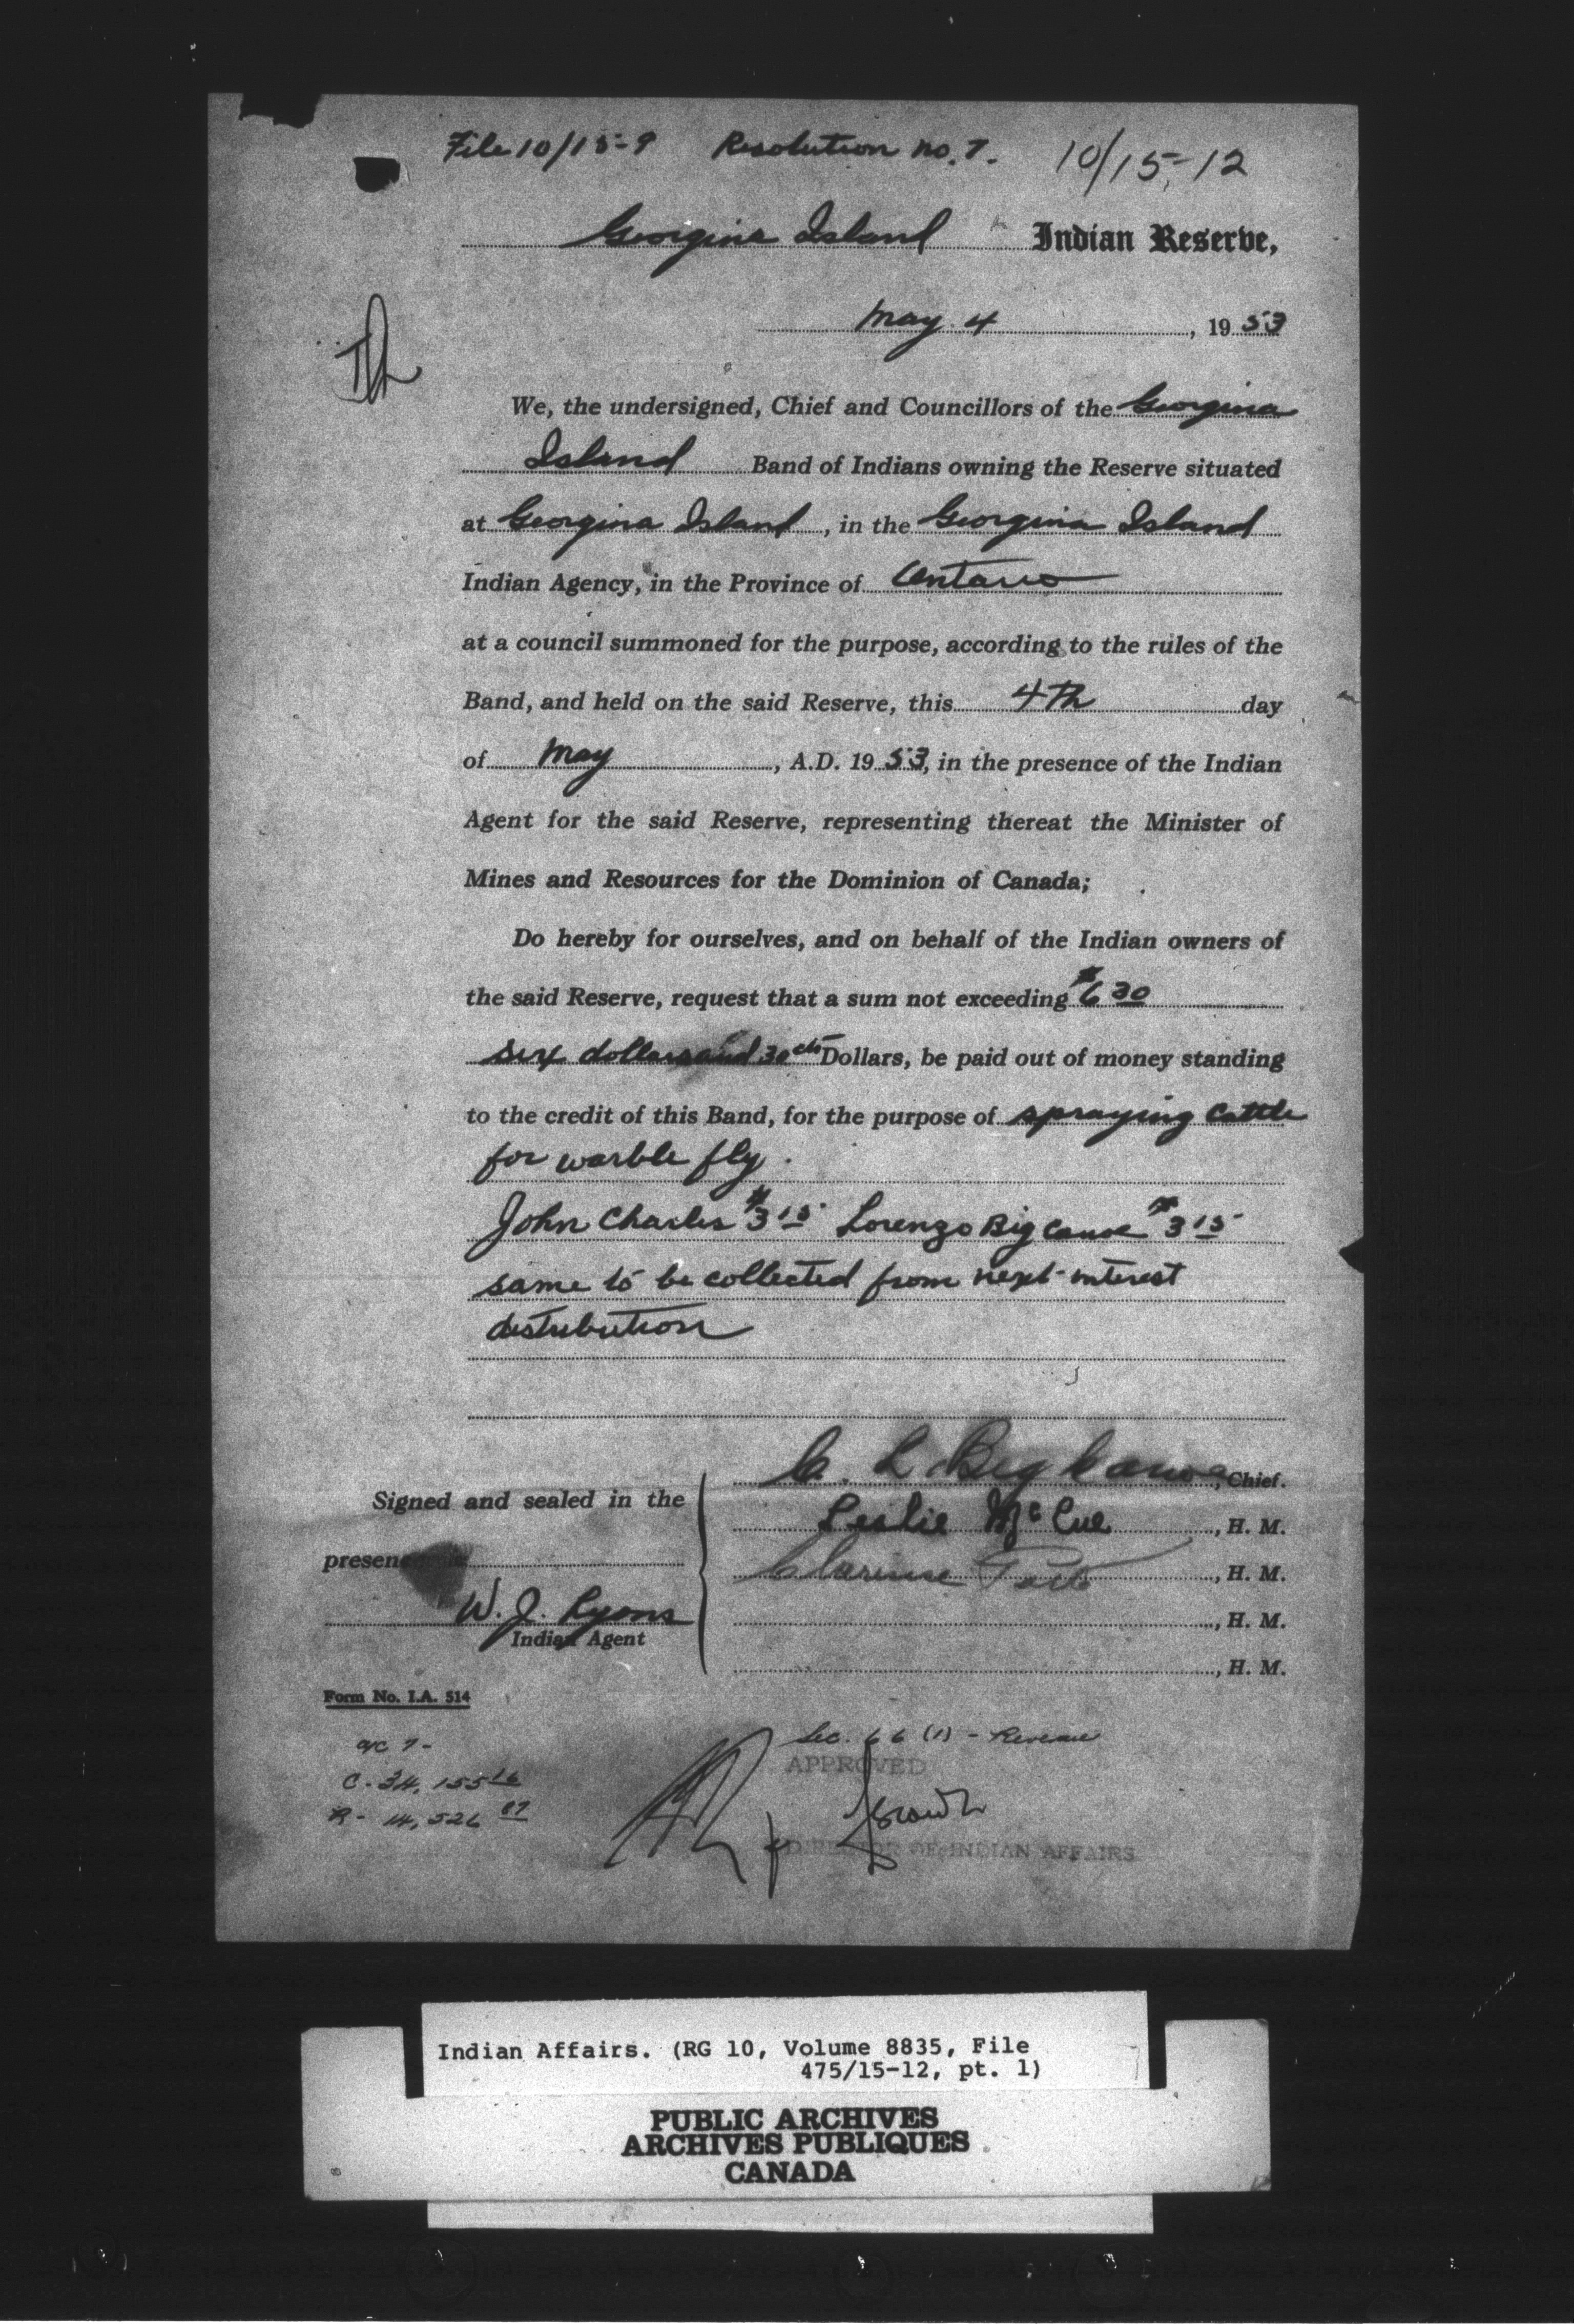 File 10/15-9 Resolution no. 7. 10/15-12
Georgina Island Indian Reserve,
May 4, 1953
We, the undersigned, Chief and Councillors of the Georgina
Island Band of Indians owning the Reserve situated
at Georgina Island, in the Georgina Island
Indian Agency, in the Province of Ontario
at a council summoned for the purpose, according to the rules of the
Band, and held on the said Reserve, this 4th day
of May, A.D. 1953, in the presence of the Indian
Agent for the said Reserve, representing thereat the Minister of
Mines and Resources for the Dominion of Canada;
Do hereby for ourselves, and on behalf of the Indian owners of
the said Reserve, request that a sum not exceeding $6 30
six dollars and 30 cts Dollars, be paid out of money standing
to the credit of this Band, for the purpose of spraying cattle
for warble fly.
John Charles $3 15 Lorenzo Big Canoe $3 15
same to be collected from next interest
distribution
C. L. Big Canoe, Chief.
Signed and sealed in the
Leslie McCue, H. M.
presen
Clarence, H. M.
W. J. Lyons
, H. M.
Indian Agent
, H. M.
Form No. I.A. 514
Sec. 66 (1) - Revenue
a/c 7-
APPROVED
C - 34,155 16
R - 14,526 87
DIRECTOR OF INDIAN AFFAIRS
Indian Affairs. (RG 10, Volume 8835, File
475/15-12, pt. 1)
PUBLIC ARCHIVES
ARCHIVES PUBLIQUES
CANADA